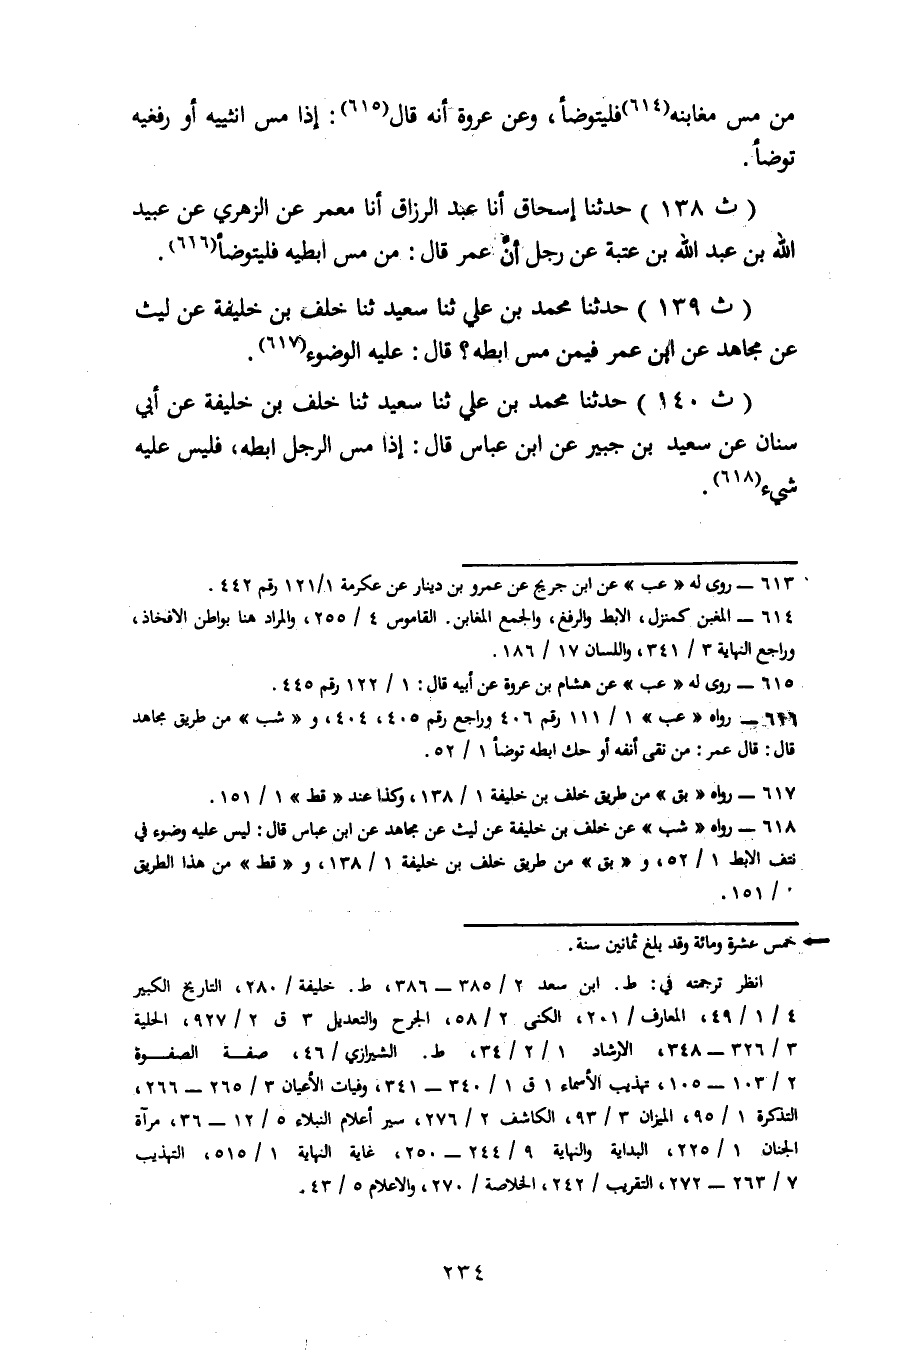 من مس مغابنه(٦١٤)فليتوضأ، وعن عروة أنه قال(٦١٥): إذا مس انثييه أو رفغيه
توضأ.
( ث ١٣٨ ) حدثنا إسحاق أنا عبد الرزاق أنا معمر عن الزهري عن عبيد
الله بن عبد الله بن عتبة عن رجل أنَّ عمر قال: من مس ابطيه فليتوضأ(٦١٦).
( ث ١٣٩ ) حدثنا محمد بن علي ثنا سعيد ثنا خلف بن خليفة عن ليث
عن مجاهد عن ابن عمر فيمن مس ابطه؟ قال: عليه الوضوء(٦١٧).
( ث ١٤٠ ) حدثنا محمد بن علي ثنا سعيد ثنا خلف بن خليفة عن أبي
سنان عن سعيد بن جبير عن ابن عباس قال: إذا مس الرجل ابطه، فليس عليه
شيء(٦١٨).
٦١٣ ــ روى له « عب » عن ابن جريج عن عمرو بن دينار عن عكرمة ١٢١/١ رقم ٤٤٢.
٦١٤ ــ المغبن كمنزل، الابط والرفغ، والجمع المغابن. القاموس ٤ / ٢٥٥، والمراد هنا بواطن الافخاذ،
وراجع النهاية ٣ / ٣٤١، واللسان ١٧ / ١٨٦.
٦١٥ ــ روى له « عب » عن هشام بن عروة عن أبيه قال: ١ / ١٢٢ رقم ٤٤٥.
٦١٦ ــ رواه « عب » ١ / ١١١ رقم ٤٠٦ وراجع رقم ٤٠٥، ٤٠٤، و « شب » من طريق مجاهد
قال: قال عمر: من نقى أنفه أو حك ابطه توضأ ١ / ٥٢.
٦١٧ ــ رواه « بق » من طريق خلف بن خليفة ١ / ١٣٨، وكذا عند « قط » ١ / ١٥١.
٦١٨ ــ رواه « شب » عن خلف بن خليفة عن ليث عن مجاهد عن ابن عباس قال: ليس عليه وضوء في
نتف الابط ١ / ٥٢، و « بق » من طريق خلف بن خليفة ١ / ١٣٨، و « قط » من هذا الطريق
/ ١٥١.
خمس عشرة ومائة وقد بلغ ثمانين سنة.
انظر ترجمته في: ط. ابن سعد ٢ / ٣٨٥ ــ ٣٨٦، ط. خليفة / ٢٨٠، التاريخ الكبير
٤ / ١ / ٤٩، المعارف / ٢٠١، الكنى ٢ / ٥٨، الجرح والتعديل ٣ ق ٢ / ٩٢٧، الحلية
٣ / ٣٢٦ ــ ٣٤٨، الارشاد ١ / ٢ / ٣٤، ط. الشيرازي / ٤٦، صفة الصفوة
٢ / ١٠٣ ــ ١٠٥، تهذيب الأسماء ١ ق ١ / ٣٤٠ ــ ٣٤١، وفيات الأعيان ٣ / ٢٦٥ ــ ٢٦٦،
التذكرة ١ / ٩٥، الميزان ٣ / ٩٣، الكاشف ٢ / ٢٧٦، سير أعلام النبلاء ٥ / ١٢ ــ ٣٦، مرآة
الجنان ١ / ٢٢٥، البداية والنهاية ٩ / ٢٤٤ ــ ٢٥٠، غاية النهاية ١ / ٥١٥، التهذيب
٧ / ٢٦٣ ــ ٢٧٢، التقريب / ٢٤٢، الخلاصة / ٢٧٠، والاعلام ٥ / ٤٣.
٢٣٤